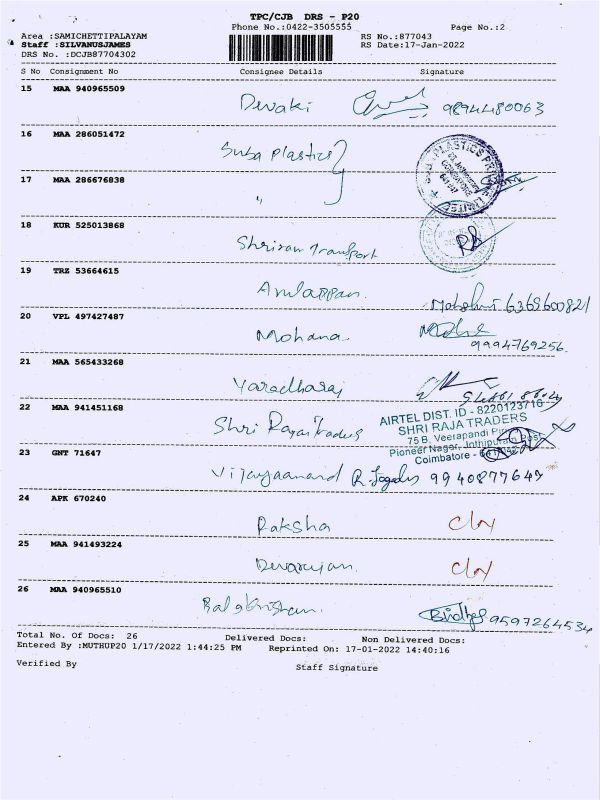 TPC/CJB DRS - P20
Phone No.:0422-3505555 Page No.:2
Area :SAMICHETTIPALAYAM RS No.:877043
Staff :SILVANUSJAMES RS Date:17-Jan-2022
DRS No. :DCJB87704302
S No Consignment No Consignee Details Signature
15 MAA 940965509
Devaki 9894480063
16 MAA 286051472
Suba Plastics
17 MAA 286676838
"
18 KUR 525013868
Shriram Transport
19 TRZ 53664615
Arulappan. 6369600821
20 VPL 497427487
Mohana 9994769256
21 MAA 565433268
Varadharaj
22 MAA 941451168
Shri Raja Traders
AIRTEL DIST. ID - 8220123710
SHRI RAJA TRADERS
75 B, Veerapandi
Pioneer Nagar, Jothipuram Post
Coimbatore -
23 GNT 71647
Vijayaanand 9940877649
24 APK 670240
Raksha
25 MAA 941493224
Devarajan.
26 MAA 940965510
Balakrishnan. 9597264534
Total No. Of Docs: 26 Delivered Docs: Non Delivered Docs:
Entered By :MUTHUP20 1/17/2022 1:44:25 PM Reprinted On: 17-01-2022 14:40:16
Verified By Staff Signature